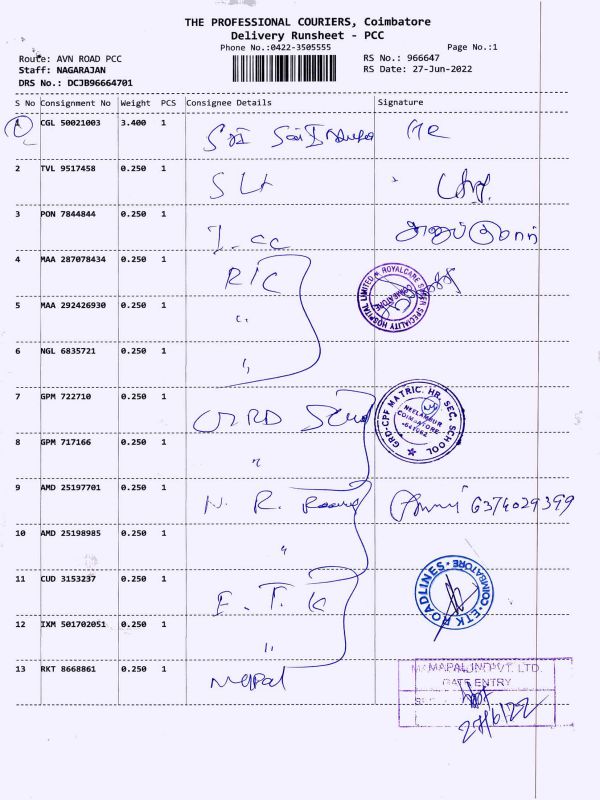 THE PROFESSIONAL COURIERS, Coimbatore
Delivery Runsheet - PCC
Phone No.:0422-3505555
Page No.:1
Route: AVN ROAD PCC
RS No.: 966647
Staff: NAGARAJAN
RS Date: 27-Jun-2022
DRS No.: DCJB96664701
S No Consignment No Weight PCS Consignee Details Signature
1 CGL 50021003 3.400 1
2 TVL 9517458 0.250 1
3 PON 7844844 0.250 1 I.CC
4 MAA 287078434 0.250 1 RIC
ROYALCARE SUPER SPECIALITY HOSPITAL LIMITED COIMBATORE
5 MAA 292426930 0.250 1 "
6 NGL 6835721 0.250 1 "
7 GPM 722710 0.250 1 GRD
GRD-CPF MATRIC. HR. SEC. SCHOOL
NEELAMBUR
COIMBATORE
-641062
8 GPM 717166 0.250 1 "
9 AMD 25197701 0.250 1 N. R. 6374029399
10 AMD 25198985 0.250 1 "
11 CUD 3153237 0.250 1 E.T.K
ETK ROADLINES COIMBATORE
12 IXM 501702051 0.250 1 "
13 RKT 8668861 0.250 1 Mapal
MAPAL IND PVT. LTD.
GATE ENTRY
27/6/22